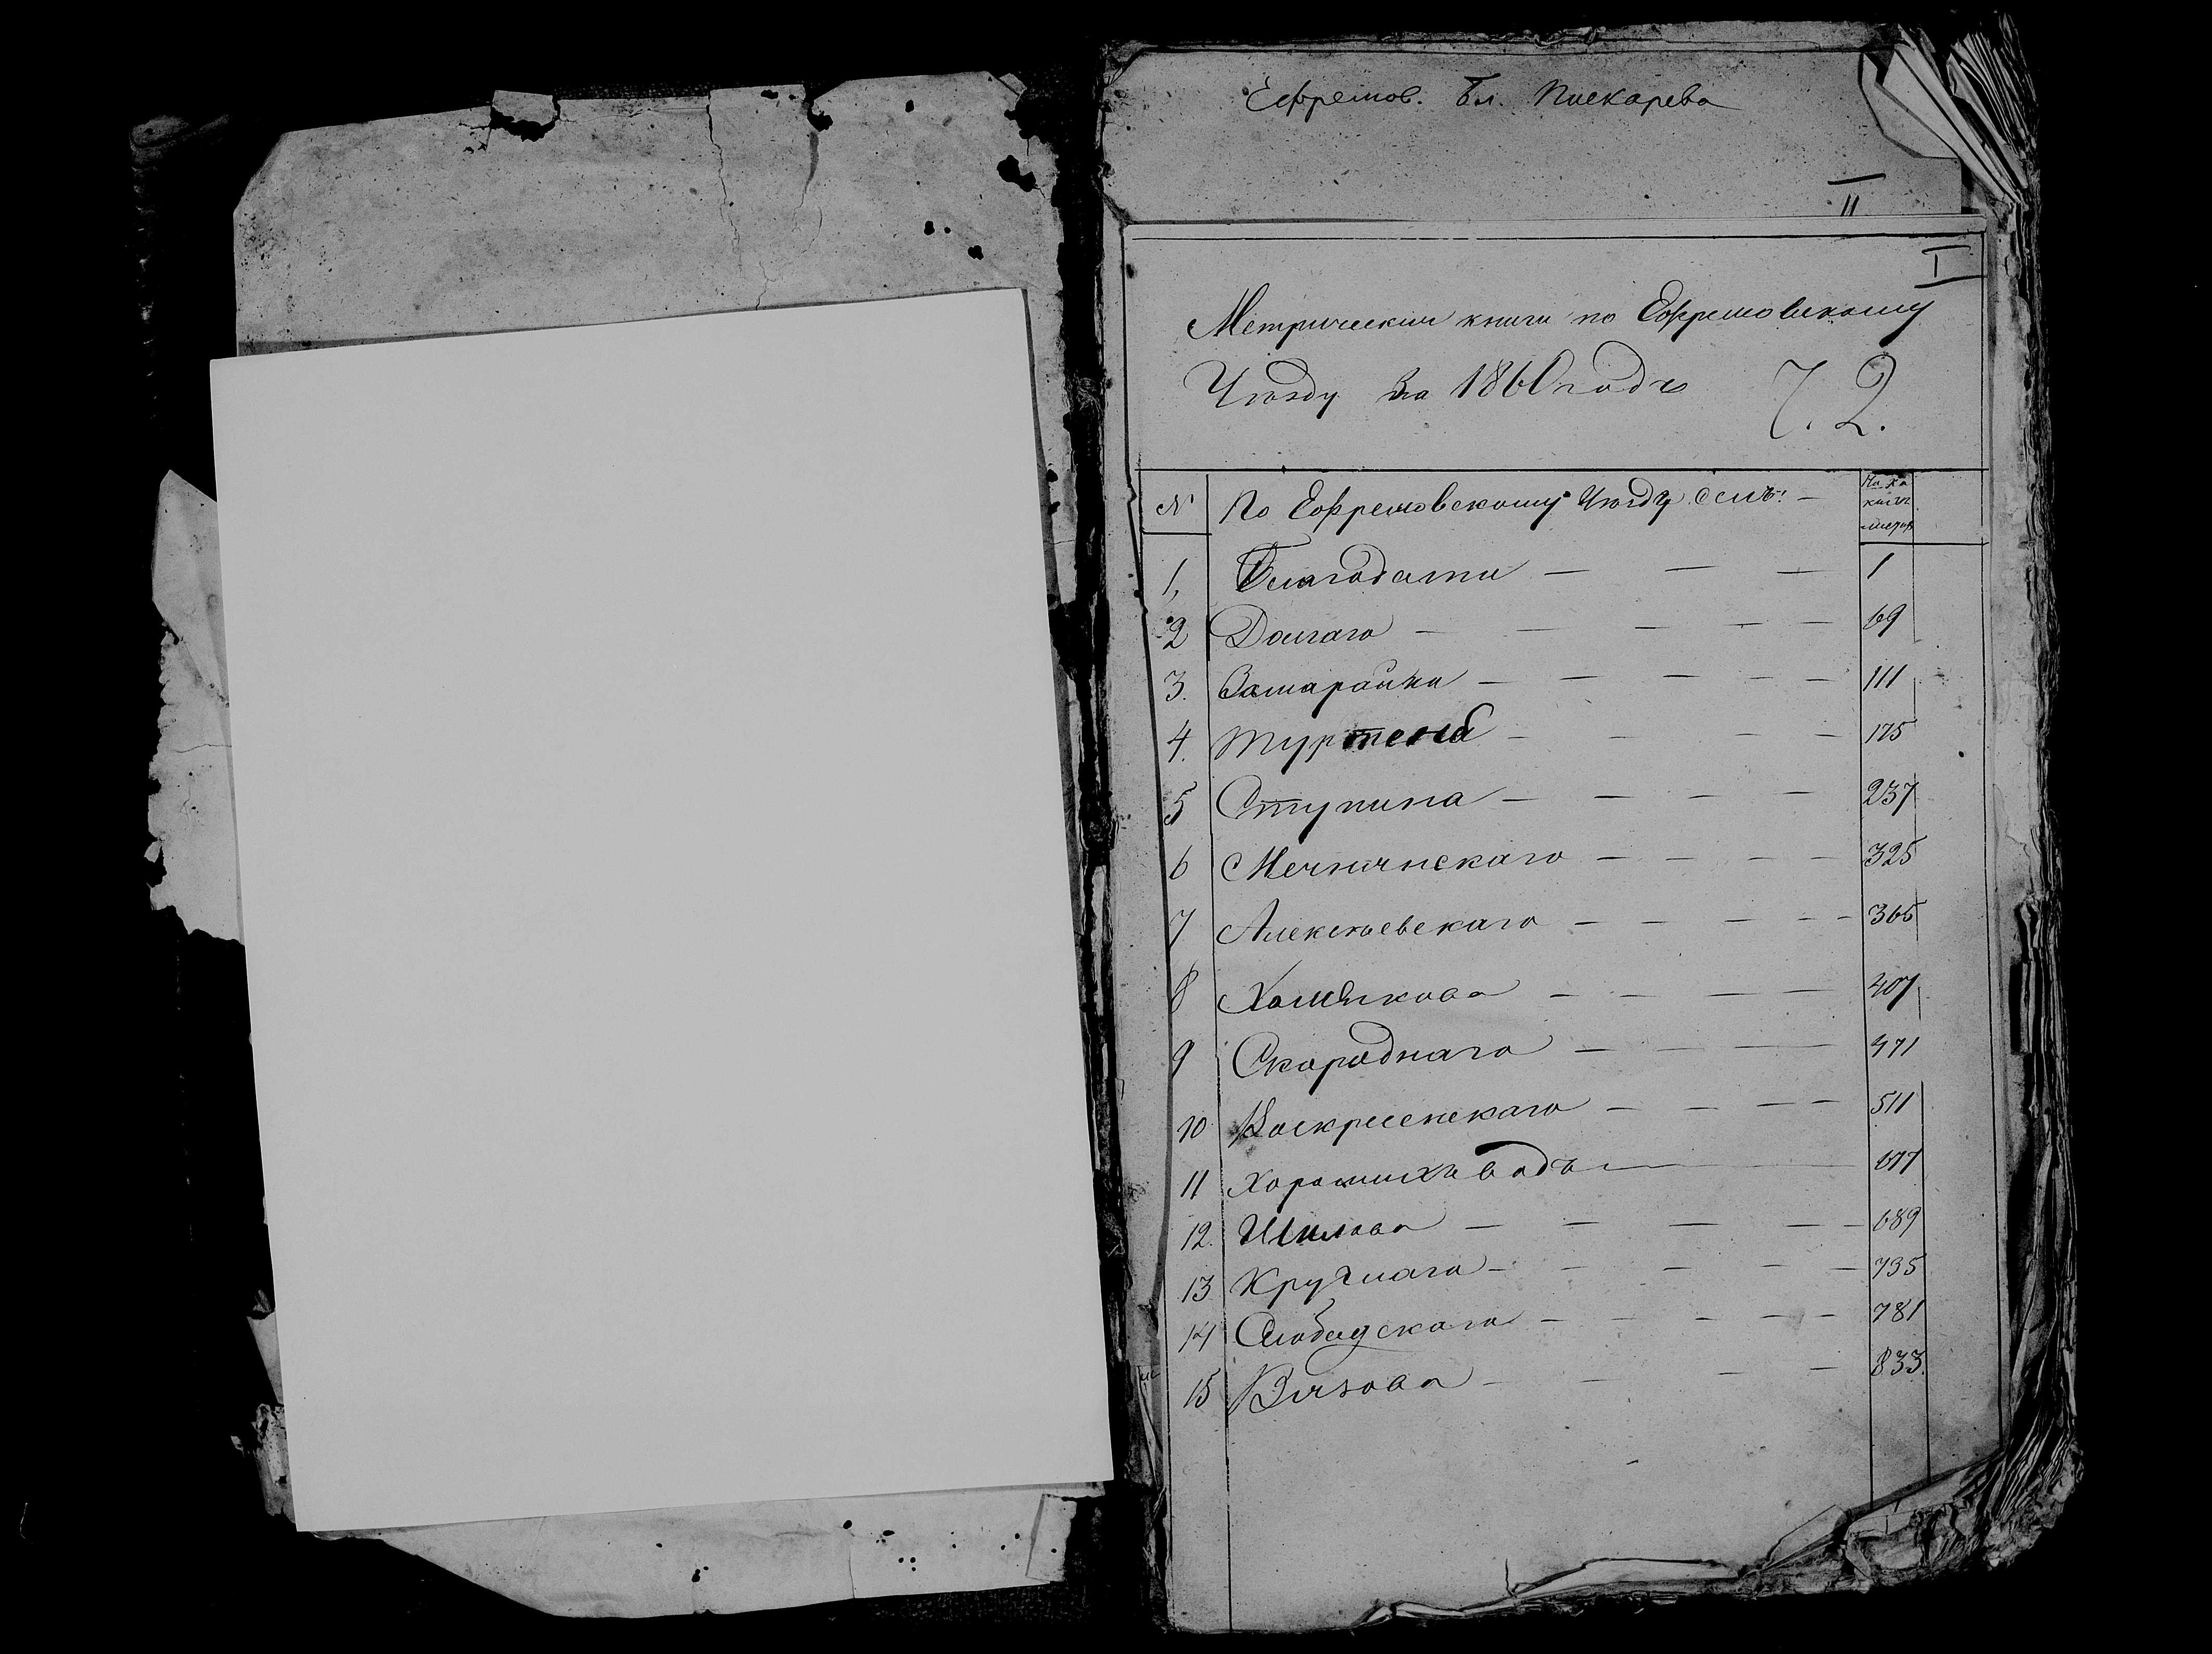 Ефремов. Бл. Пискарева
II
I
Метрическия книги по Ефремовскому
Уѣзду за 1860 годъ Ч. 2.
№ По Ефремовскому Уѣзду селъ: На ка кихъ листах
1, Благодати 1
2 Долгаго 69
3. Замарайки 111
4. Туртеня 175
5 Ступина 237
6 Мечнянскаго 325
7 Алексѣевскаго 365
8 Хомякова 407
9 Скороднаго 471
10 Воскресенскаго 511
11 Хорошихъ водъ 677
12. Шилова 689
13 Круглаго 735
14 Слободскаго 781
15 Вязова 833.